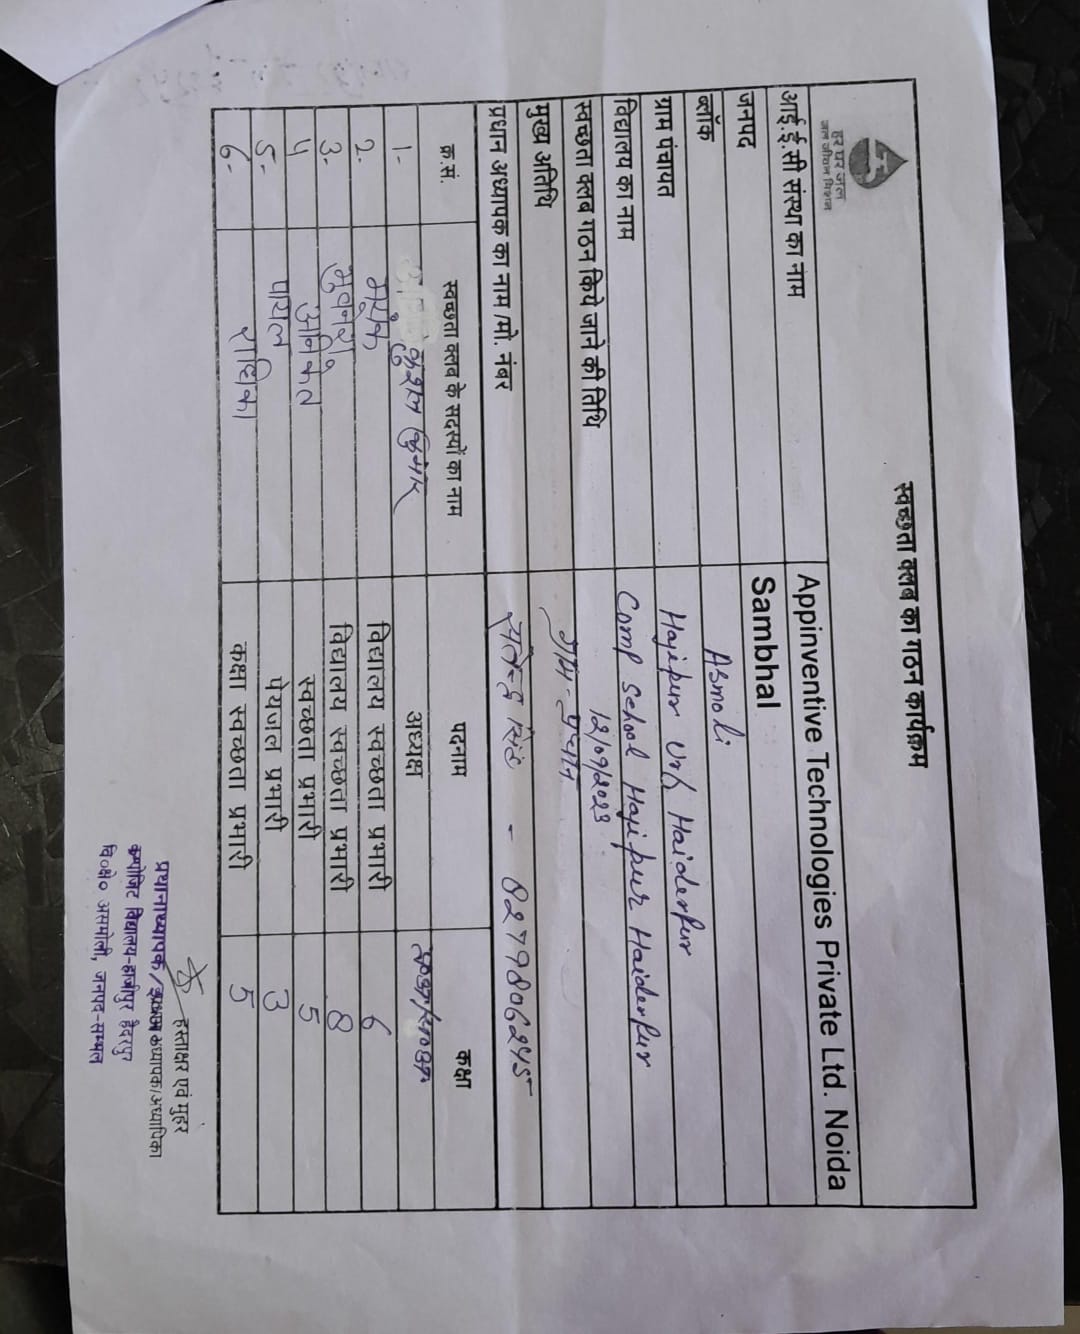 स्वच्छता क्लब का गठन कार्यक्रम
हर घर जल
जल जीवन मिशन
आई.ई.सी संस्था का नाम Appinventive Technologies Private Ltd. Noida
जनपद Sambhal
ब्लॉक Asmoli
ग्राम पंचायत Hajipur Urf Haiderpur
विद्यालय का नाम Comp School Hajipur Haiderpur
स्वच्छता क्लब गठन किये जाने की तिथि 12/09/2023
मुख्य अतिथि ग्राम-प्रधान
प्रधान अध्यापक का नाम /मो. नंबर सिंह - 8279806245
क्र.सं. स्वच्छता क्लब के सदस्यों का नाम पदनाम कक्षा
1- कुशल कुमार अध्यक्ष
2. मयंक विद्यालय स्वच्छता प्रभारी 6
3. विद्यालय स्वच्छता प्रभारी 8
4 अनिकेत स्वच्छता प्रभारी 5
5- पायल पेयजल प्रभारी 3
6- राधिका कक्षा स्वच्छता प्रभारी 5
हस्ताक्षर एवं मुहर
प्रधानाध्यापक/ अध्यापक/अध्यापिका
कम्पोजिट विद्यालय-हाजीपुर हैदरपुर
वि०क्षे० असमोली, जनपद-सम्भल